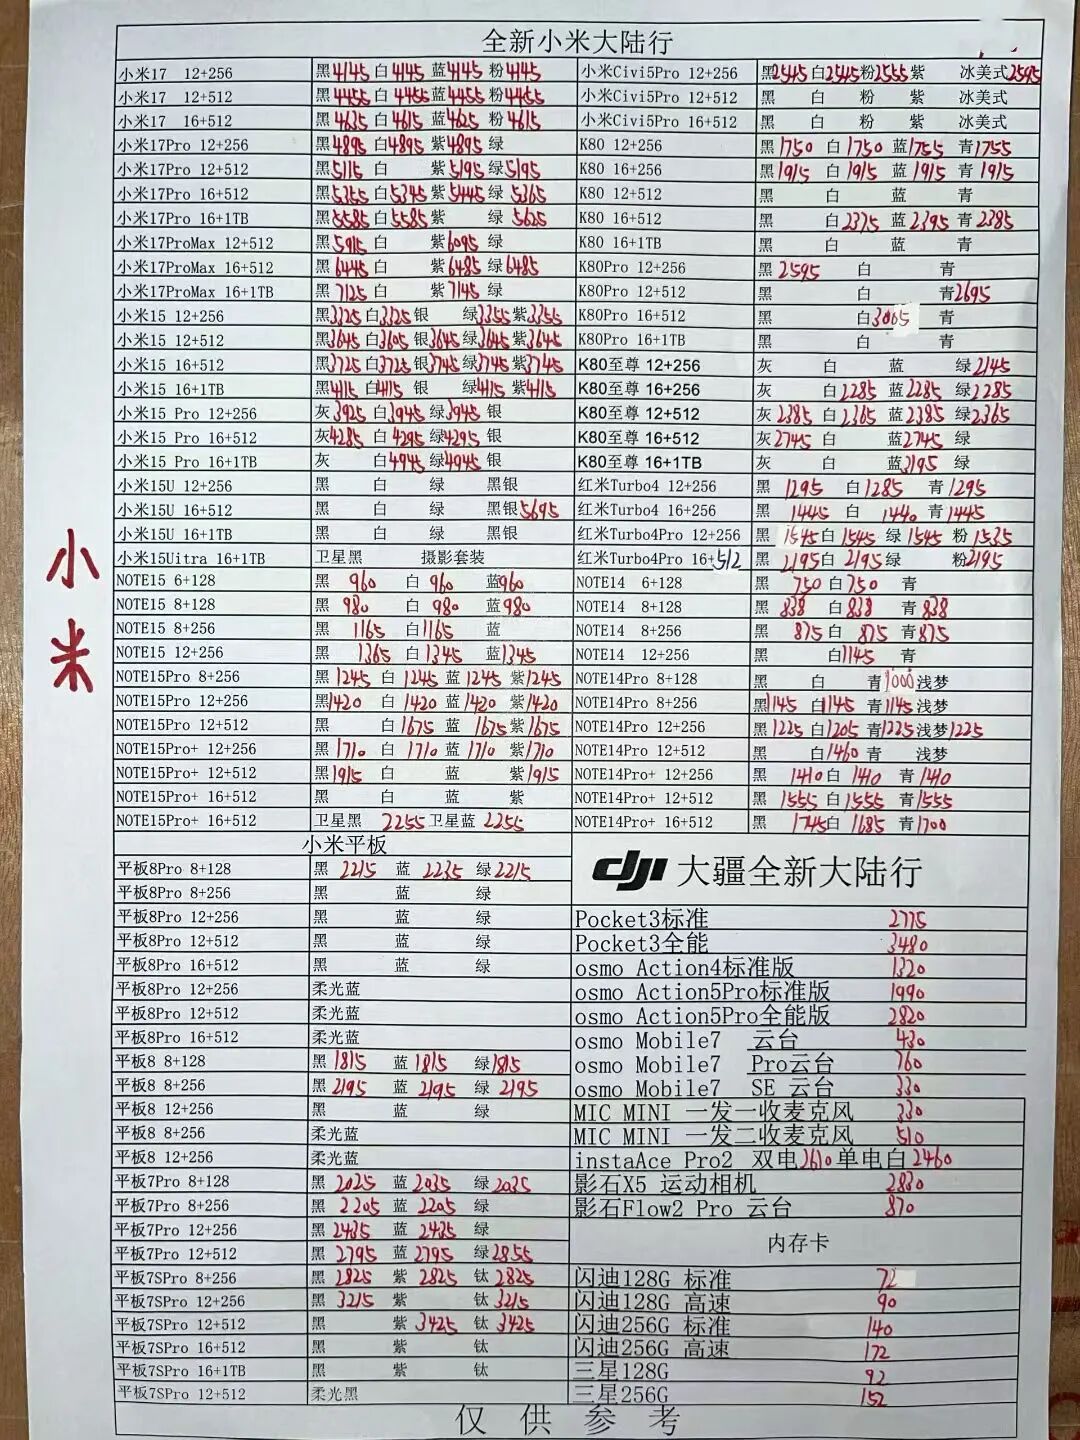 全新小米大陆行
小米17 12+256 黑4145 白4145 蓝4145 粉4145
小米17 12+512 黑4455 白4455 蓝4455 粉4455
小米17 16+512 黑4635 白4615 蓝4625 粉4615
小米17Pro 12+256 黑4895 白4895 紫4895 绿
小米17Pro 12+512 黑5115 白 紫5195 绿5195
小米17Pro 16+512 黑5355 白5345 紫5445 绿5365
小米17Pro 16+1TB 黑5585 白5585 紫 绿5625
小米17ProMax 12+512 黑5915 白 紫6095 绿
小米17ProMax 16+512 黑6445 白 紫6485 绿6485
小米17ProMax 16+1TB 黑7125 白 紫7145 绿
小米15 12+256 黑3325 白3325 银 绿3355 紫3355
小米15 12+512 黑3645 白3605 银3645 绿3645 紫3645
小米15 16+512 黑3725 白3725 银3745 绿3745 紫3745
小米15 16+1TB 黑4115 白4115 银 绿4115 紫4115
小米15 Pro 12+256 灰3925 白3945 绿3945 银
小米15 Pro 16+512 灰4285 白4295 绿4295 银
小米15 Pro 16+1TB 灰 白4945 绿4945 银
小米15U 12+256 黑 白 绿 黑银
小米15U 16+512 黑 白 绿 黑银5695
小米15U 16+1TB 黑 白 绿 黑银
小米15Uitra 16+1TB 卫星黑 摄影套装
NOTE15 6+128 黑 960 白 960 蓝960
NOTE15 8+128 黑 980 白 980 蓝980
NOTE15 8+256 黑 1165 白1165 蓝
NOTE15 12+256 黑 1365 白1345 蓝1345
NOTE15Pro 8+256 黑1245 白1245 蓝1245 紫1245
NOTE15Pro 12+256 黑1420 白1420 蓝1420 紫1420
NOTE15Pro 12+512 黑 白1675 蓝1675 紫1675
NOTE15Pro+ 12+256 黑1710 白1710 蓝1710 紫1710
NOTE15Pro+ 12+512 黑1915 白 蓝 紫1915
NOTE15Pro+ 16+512 黑 白 蓝 紫
NOTE15Pro+ 16+512 卫星黑 2255 卫星蓝 2255
小米平板
平板8Pro 8+128 黑 2215 蓝 2235 绿2215
平板8Pro 8+256 黑 蓝 绿
平板8Pro 12+256 黑 蓝 绿
平板8Pro 12+512 黑 蓝 绿
平板8Pro 16+512 黑 蓝 绿
平板8Pro 12+256 柔光蓝
平板8Pro 12+512 柔光蓝
平板8Pro 16+512 柔光蓝
平板8 8+128 黑1815 蓝1815 绿1815
平板8 8+256 黑2195 蓝2195 绿2195
平板8 12+256 黑 蓝 绿
平板8 8+256 柔光蓝
平板8 12+256 柔光蓝
平板7Pro 8+128 黑2025 蓝2035 绿2035
平板7Pro 8+256 黑 2205 蓝2205 绿
平板7Pro 12+256 黑2435 蓝2435 绿
平板7Pro 12+512 黑2795 蓝2795 绿2855
平板7SPro 8+256 黑2825 紫2825 钛2825
平板7SPro 12+256 黑 3215 紫 钛3215
平板7SPro 12+512 黑 紫3425 钛3425
平板7SPro 16+512 黑 紫 钛
平板7SPro 16+1TB 黑 紫 钛
平板7SPro 12+512 柔光黑
小米Civi5Pro 12+256 黑2545 白2545 粉2555 紫 冰美式2595
小米Civi5Pro 12+512 黑 白 粉 紫 冰美式
小米Civi5Pro 16+512 黑 白 粉 紫 冰美式
K80 12+256 黑1750 白1750 蓝1755 青1755
K80 16+256 黑1915 白1915 蓝1915 青1915
K80 12+512 黑 白 蓝 青
K80 16+512 黑 白2375 蓝2395 青2385
K80 16+1TB 黑 白 蓝 青
K80Pro 12+256 黑2595 白 青
K80Pro 12+512 黑 白 青2695
K80Pro 16+512 黑 白3005 青
K80Pro 16+1TB 黑 白 青
K80至尊 12+256 灰 白 蓝 绿2145
K80至尊 16+256 灰 白2285 蓝2285 绿2285
K80至尊 12+512 灰2385 白2365 蓝2385 绿2365
K80至尊 16+512 灰2745 白 蓝2745 绿
K80至尊 16+1TB 灰 白 蓝3195 绿
红米Turbo4 12+256 黑 1295 白1285 青1295
红米Turbo4 16+256 黑 1445 白 1440 青1445
红米Turbo4Pro 12+256 黑 1545 白1545 绿1545 粉1535
红米Turbo4Pro 16+512 黑 2195 白2195 绿 粉2195
NOTE14 6+128 黑 750 白750 青
NOTE14 8+128 黑 838 白838 青838
NOTE14 8+256 黑 875 白 875 青875
NOTE14 12+256 黑 白1145 青
NOTE14Pro 8+128 黑 白 青1000 浅梦
NOTE14Pro 8+256 黑1145 白1145 青1145 浅梦
NOTE14Pro 12+256 黑1225 白1205 青1225 浅梦1225
NOTE14Pro 12+512 黑 白1460 青 浅梦
NOTE14Pro+ 12+256 黑 1410 白1410 青1410
NOTE14Pro+ 12+512 黑 1555 白1555 青1555
NOTE14Pro+ 16+512 黑 1745 白1685 青1700
dji 大疆全新大陆行
Pocket3标准 2775
Pocket3全能 3480
osmo Action4标准版 1320
osmo Action5Pro标准版 1990
osmo Action5Pro全能版 2820
osmo Mobile7 云台 430
osmo Mobile7 Pro云台 760
osmo Mobile7 SE 云台 330
MIC MINI 一发一收麦克风 330
MIC MINI 一发二收麦克风 510
instaAce Pro2 双电2610 单电白2460
影石X5 运动相机 2830
影石Flow2 Pro 云台 870
内存卡
闪迪128G 标准 72
闪迪128G 高速 90
闪迪256G 标准 140
闪迪256G 高速 172
三星128G 92
三星256G 152
仅供参考
小米